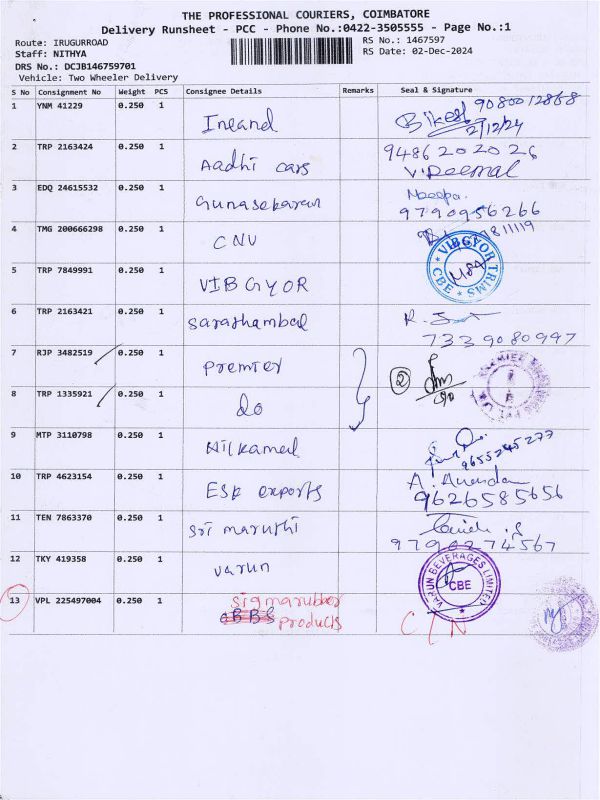 THE PROFESSIONAL COURIERS, COIMBATORE
Delivery Runsheet - PCC - Phone No.:0422-3505555 - Page No.:1
Route: IRUGURROAD
RS No.: 1467597
Staff: NITHYA
RS Date: 02-Dec-2024
DRS No.: DCJB146759701
Vehicle: Two Wheeler Delivery
S No Consignment No Weight PCS Consignee Details Remarks Seal & Signature
1 YNM 41229 0.250 1 Ineand 9080012868
2/12/24
2 TRP 2163424 0.250 1 Aadhi cars 9486202026
3 EDQ 24615532 0.250 1 Gunasekaran 9790956266
4 TMG 200666298 0.250 1 CNV
VIBGYOR TRIMS
CBE
5 TRP 7849991 0.250 1 VIBGYOR
6 TRP 2163421 0.250 1 7339080997
7 RJP 3482519 0.250 1 Premier
2
8 TRP 1335921 0.250 1 do
9 MTP 3110798 0.250 1 Nilkamal 9655245277
10 TRP 4623154 0.250 1 ESK exports 9626585656
11 TEN 7863370 0.250 1 Sri maruthi 9790274567
12 TKY 419358 0.250 1 varun
VARUN BEVERAGES LIMITED
CBE
13 VPL 225497004 0.250 1 sigmarubber
products
C/N